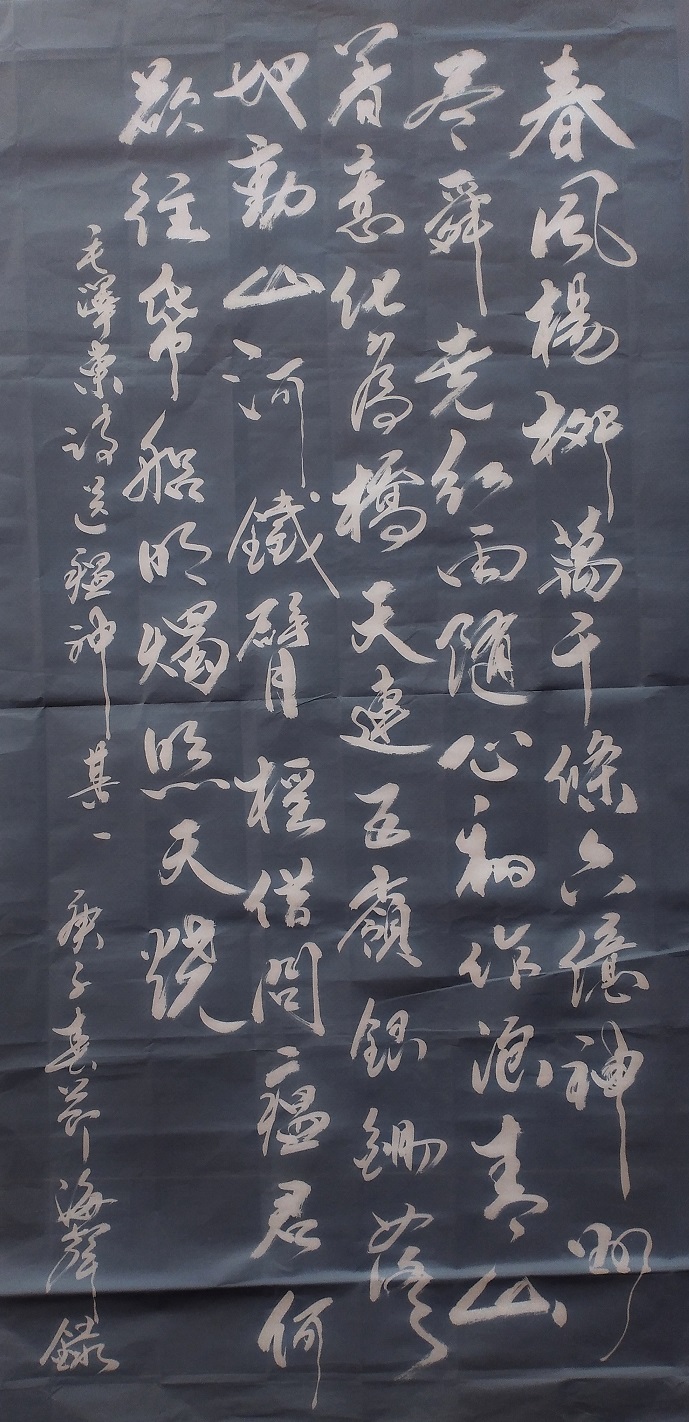 春風楊柳萬千條六億神州
尽舜尭紅雨隨心翻作浪青山
着意化為橋天連五嶺銀鋤落
地動山河鐵臂摇借問瘟君何
欲往帋船明燭照天燒
毛澤東詩送瘟神其一 庚子春節海聲錄